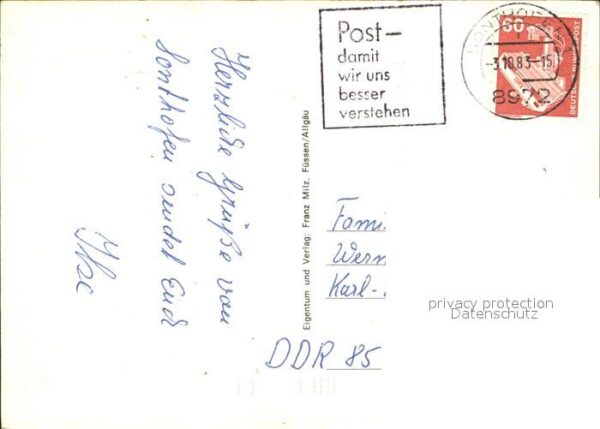 Herzliche Grüße von
Sonthofen sendet Euch
Post—
damit
wir uns
besser
verstehen
SONTHOFEN 1
-3.10.83-15
8972
60
DEUTSCHE BUNDESPOST
Eigentum und Verlag: Franz Milz, Füssen/Allgäu
Fami
Wern
Karl-
DDR 85
privacy protection
Datenschutz